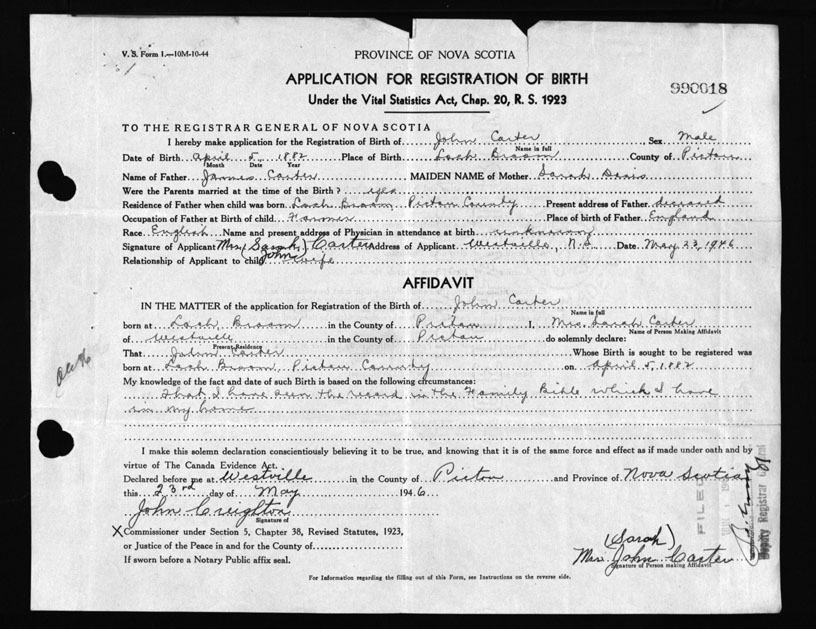 V. S. Form 1.—10M-10-44
PROVINCE OF NOVA SCOTIA
APPLICATION FOR REGISTRATION OF BIRTH
990018
Under the Vital Statistics Act, Chap. 20, R. S. 1923
TO THE REGISTRAR GENERAL OF NOVA SCOTIA
I hereby make application for the Registration of Birth of John Carter Sex Male
Name in full
Date of Birth April 5, 1882 Place of Birth Loch Broom County of Pictou
Month Date Year
Name of Father James Carter MAIDEN NAME of Mother Sarah Davis
Were the Parents married at the time of the Birth? yes
Residence of Father when child was born Loch Broom Pictou County Present address of Father deceased
Occupation of Father at Birth of child Farmer Place of birth of Father England
Race English Name and present address of Physician in attendance at birth unknown
Signature of Applicant Mrs (Sarah) Carter Address of Applicant Westville, N.S. Date May 23, 1946
John
Relationship of Applicant to child wife
AFFIDAVIT
IN THE MATTER of the application for Registration of the Birth of John Carter
Name in full
born at Loch Broom in the County of Pictou I, Mrs. Sarah Carter
Name of Person Making Affidavit
of Westville in the County of Pictou do solemnly declare:
Present Residence
That John Carter Whose Birth is sought to be registered was
born at Loch Broom, Pictou County on April 5, 1882
My knowledge of the fact and date of such Birth is based on the following circumstances:
That I have seen the record in the Family Bible which I have
in my home
I make this solemn declaration conscientiously believing it to be true, and knowing that it is of the same force and effect as if made under oath and by
virtue of The Canada Evidence Act.
Declared before me at Westville in the County of Pictou and Province of Nova Scotia
this 23rd day of May 1946
John Creighton
Signature of
X Commissioner under Section 5, Chapter 38, Revised Statutes, 1923,
or Justice of the Peace in and for the County of
If sworn before a Notary Public affix seal.
(Sarah)
Mrs. John Carter
Signature of Person making Affidavit
FILE
Deputy Registrar
For Information regarding the filling out of this Form, see Instructions on the reverse side.